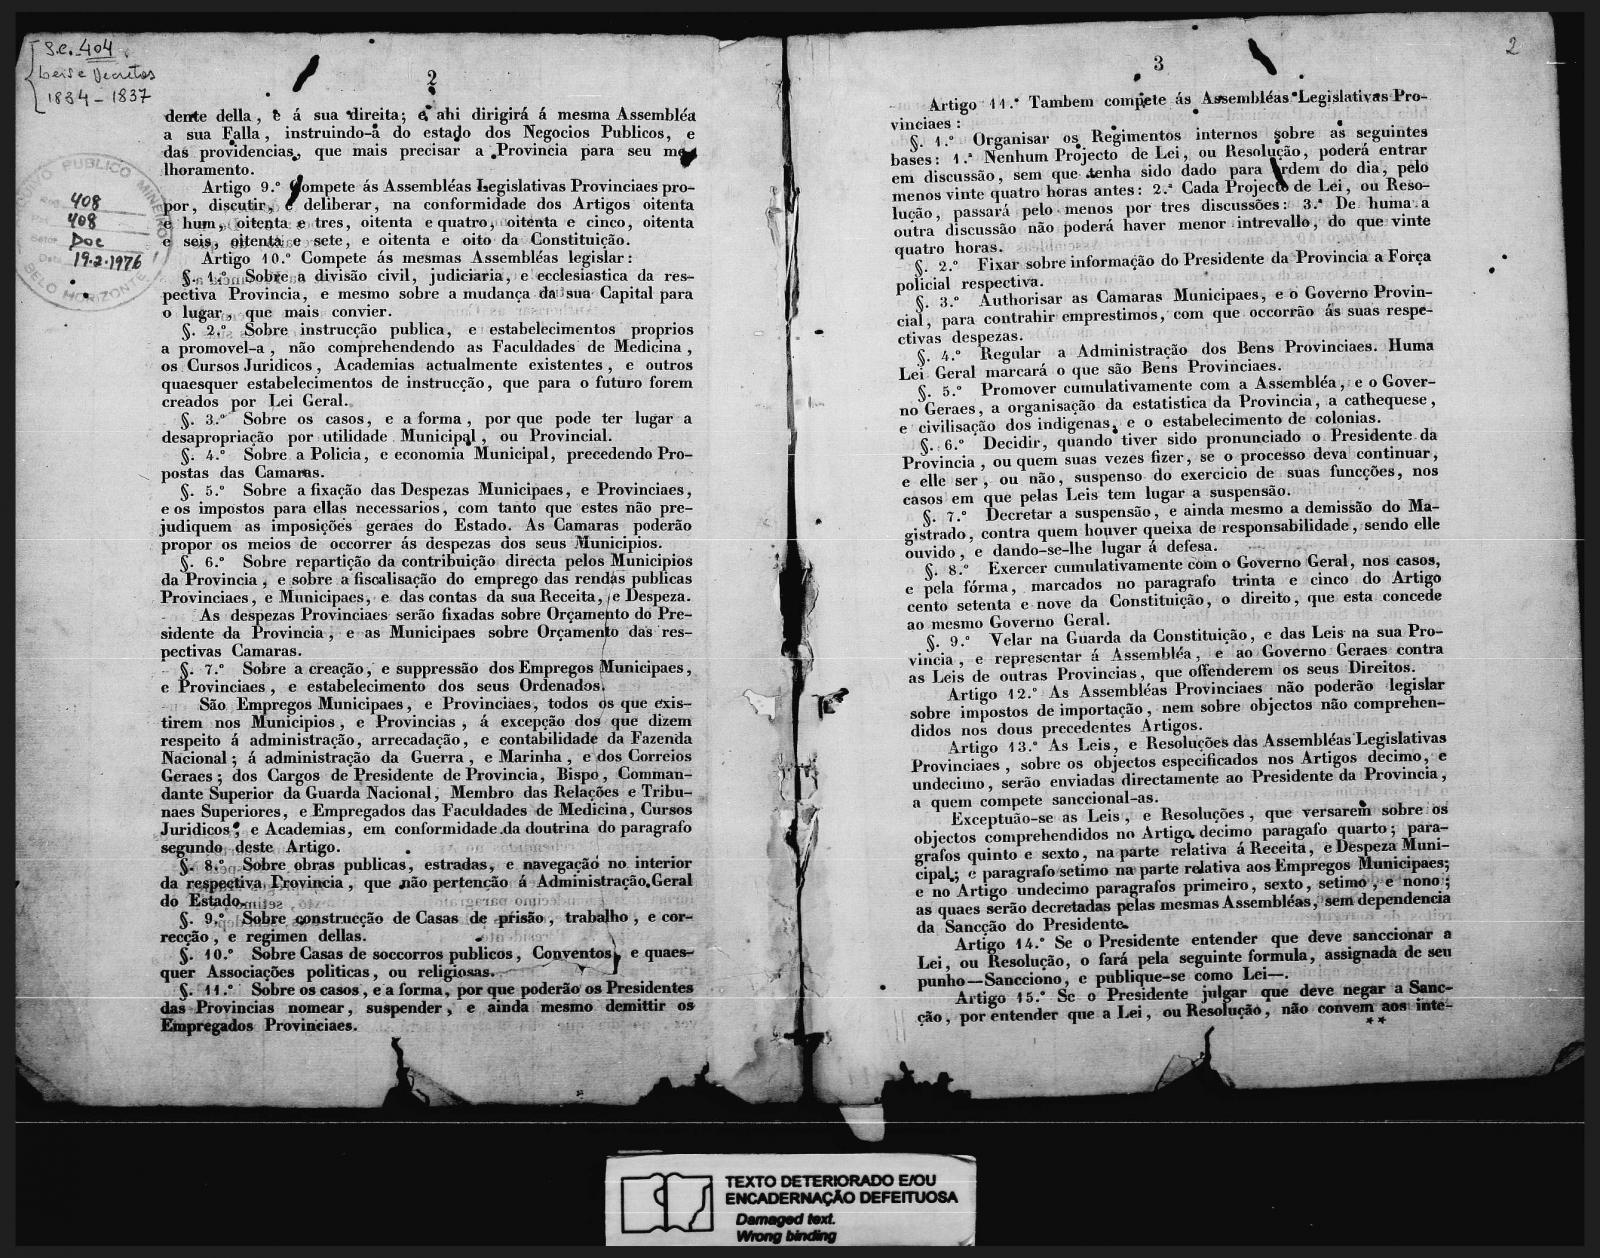 S.C. 404
Leis e Decretos
1834-1837
PUBLICO MINEIRO
408
408
Doc
19.2.1976
BELO HORIZONTE
2
dente della, e á sua direita; e ahi dirigirá á mesma Assembléa
a sua Falla, instruindo-a do estado dos Negocios Publicos, e
das providencias, que mais precisar a Provincia para seu me-
lhoramento.
Artigo 9.º Compete ás Assembléas Legislativas Provinciaes pro-
por, discutir, e deliberar, na conformidade dos Artigos oitenta
e hum, oitenta e tres, oitenta e quatro, oitenta e cinco, oitenta
e seis, oitenta e sete, e oitenta e oito da Constituição.
Artigo 10.º Compete ás mesmas Assembléas legislar:
§. 1.º Sobre a divisão civil, judiciaria, e ecclesiastica da res-
pectiva Provincia, e mesmo sobre a mudança da sua Capital para
o lugar, que mais convier.
§. 2.º Sobre instrucção publica, e estabelecimentos proprios
a promovel-a, não comprehendendo as Faculdades de Medicina,
os Cursos Juridicos, Academias actualmente existentes, e outros
quaesquer estabelecimentos de instrucção, que para o futuro forem
creados por Lei Geral.
§. 3.º Sobre os casos, e a forma, por que pode ter lugar a
desapropriação por utilidade Municipal, ou Provincial.
§. 4.º Sobre a Policia, e economia Municipal, precedendo Pro-
postas das Camaras.
§. 5.º Sobre a fixação das Despezas Municipaes, e Provinciaes,
e os impostos para ellas necessarios, com tanto que estes não pre-
judiquem as imposições geraes do Estado. As Camaras poderão
propor os meios de occorrer ás despezas dos seus Municipios.
§. 6.º Sobre repartição da contribuição directa pelos Municipios
da Provincia, e sobre a fiscalisação do emprego das rendas publicas
Provinciaes, e Municipaes, e das contas da sua Receita, e Despeza.
As despezas Provinciaes serão fixadas sobre Orçamento do Pre-
sidente da Provincia, e as Municipaes sobre Orçamento das res-
pectivas Camaras.
§. 7.º Sobre a creação, e suppressão dos Empregos Municipaes,
e Provinciaes, e estabelecimento dos seus Ordenados.
São Empregos Municipaes, e Provinciaes, todos os que exis-
tirem nos Municipios, e Provincias, á excepção dos que dizem
respeito á administração, arrecadação, e contabilidade da Fazenda
Nacional; á administração da Guerra, e Marinha, e dos Correios
Geraes; dos Cargos de Presidente de Provincia, Bispo, Comman-
dante Superior da Guarda Nacional, Membro das Relações e Tribu-
naes Superiores, e Empregados das Faculdades de Medicina, Cursos
Juridicos, e Academias, em conformidade da doutrina do paragrafo
segundo deste Artigo.
§. 8.º Sobre obras publicas, estradas, e navegação no interior
da respectiva Provincia, que não pertenção á Administração Geral
do Estado.
§. 9.º Sobre construcção de Casas de prisão, trabalho, e cor-
recção, e regimen dellas.
§. 10.º Sobre Casas de soccorros publicos, Conventos, e quaes-
quer Associações politicas, ou religiosas.
§. 11.º Sobre os casos, e a forma, por que poderão os Presidentes
das Provincias nomear, suspender, e ainda mesmo demittir os
Empregados Provinciaes.
2
3
Artigo 11.º Tambem compete ás Assembléas Legislativas Pro-
vinciaes:
§. 1.º Organisar os Regimentos internos sobre as seguintes
bases: 1.ª Nenhum Projecto de Lei, ou Resolução, poderá entrar
em discussão, sem que tenha sido dado para Ordem do dia, pelo
menos vinte quatro horas antes: 2.ª Cada Projecto de Lei, ou Reso-
lução, passará pelo menos por tres discussões: 3.ª De huma a
outra discussão não poderá haver menor intrevallo, do que vinte
quatro horas.
§. 2.º Fixar sobre informação do Presidente da Provincia a Força
policial respectiva.
§. 3.º Authorisar as Camaras Municipaes, e o Governo Provin-
cial, para contrahir emprestimos, com que occorrão ás suas respe-
ctivas despezas.
§. 4.º Regular a Administração dos Bens Provinciaes. Huma
Lei Geral marcará o que são Bens Provinciaes.
§. 5.º Promover cumulativamente com a Assembléa, e o Gover-
no Geraes, a organisação da estatistica da Provincia, a cathequese,
e civilisação dos indigenas, e o estabelecimento de colonias.
§. 6.º Decidir, quando tiver sido pronunciado o Presidente da
Provincia, ou quem suas vezes fizer, se o processo deva continuar,
e elle ser, ou não, suspenso do exercicio de suas funcções, nos
casos em que pelas Leis tem lugar a suspensão.
§. 7.º Decretar a suspensão, e ainda mesmo a demissão do Ma-
gistrado, contra quem houver queixa de responsabilidade, sendo elle
ouvido, e dando-se-lhe lugar á defesa.
§. 8.º Exercer cumulativamente com o Governo Geral, nos casos,
e pela fórma, marcados no paragrafo trinta e cinco do Artigo
cento setenta e nove da Constituição, o direito, que esta concede
ao mesmo Governo Geral.
§. 9.º Velar na Guarda da Constituição, e das Leis na sua Pro-
vincia, e representar á Assembléa, e ao Governo Geraes contra
as Leis de outras Provincias, que offenderem os seus Direitos.
Artigo 12.º As Assembléas Provinciaes não poderão legislar
sobre impostos de importação, nem sobre objectos não comprehen-
didos nos dous precedentes Artigos.
Artigo 13.º As Leis, e Resoluções das Assembléas Legislativas
Provinciaes, sobre os objectos especificados nos Artigos decimo, e
undecimo, serão enviadas directamente ao Presidente da Provincia,
a quem compete sanccional-as.
Exceptuão-se as Leis, e Resoluções, que versarem sobre os
objectos comprehendidos no Artigo decimo paragafo quarto; para-
grafos quinto e sexto, na parte relativa á Receita, e Despeza Muni-
cipal; e paragrafo setimo na parte relativa aos Empregos Municipaes;
e no Artigo undecimo paragrafos primeiro, sexto, setimo, e nono;
as quaes serão decretadas pelas mesmas Assembléas, sem dependencia
da Sancção do Presidente.
Artigo 14.º Se o Presidente entender que deve sanccionar a
Lei, ou Resolução, o fará pela seguinte formula, assignada de seu
punho—Sancciono, e publique-se como Lei—.
Artigo 15.º Se o Presidente julgar que deve negar a Sanc-
ção, por entender que a Lei, ou Resolução, não convem aos inte-
**
TEXTO DETERIORADO E/OU
ENCADERNAÇÃO DEFEITUOSA
Damaged text.
Wrong binding